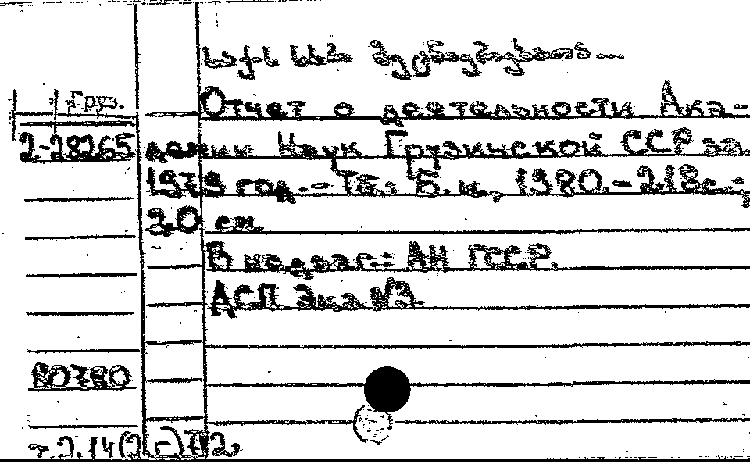 საქ. სსრ მეცნიერებათა...
Груз.
Отчет о деятельности Ака-
2-28265 демии Наук Грузинской ССР за
1979 год. – Тб.: Б. и., 1980. – 218с.;
20 см.
В надзаг.: АН ГССР.
ДСП Экз №3.
80780